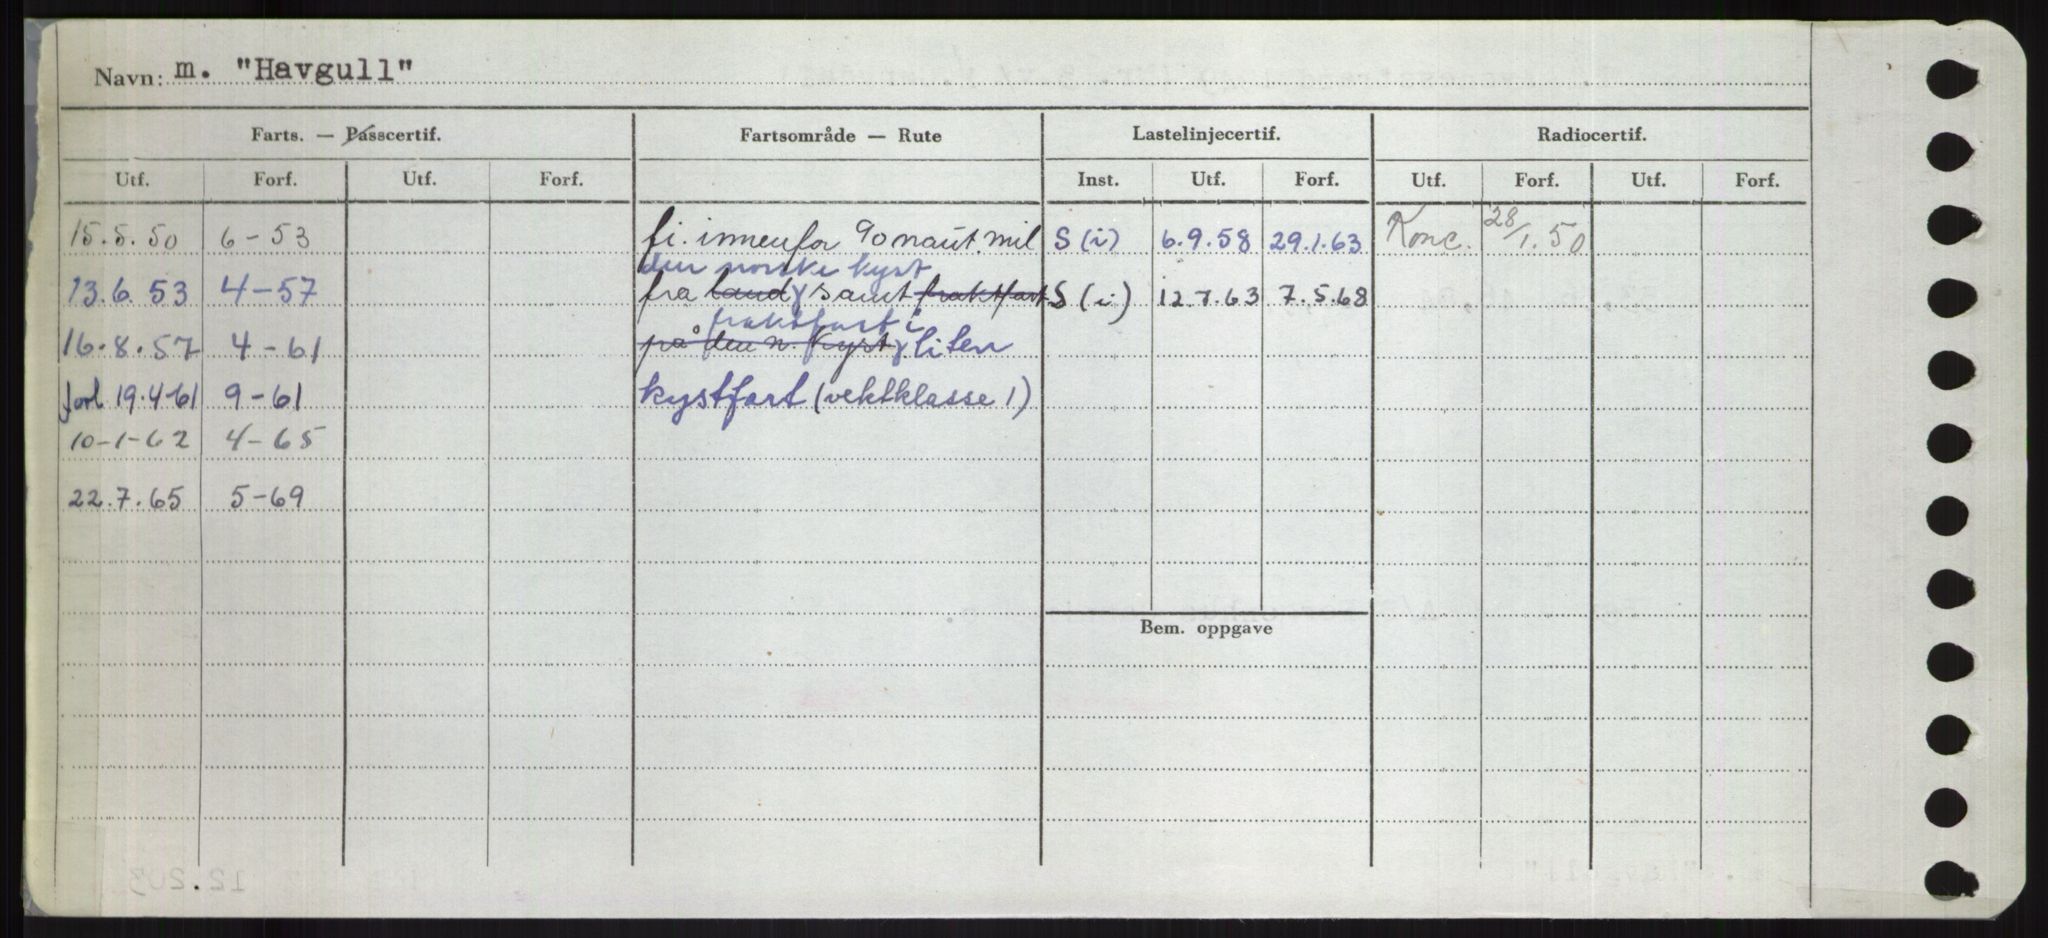 Navn: m. "Havgull"
Farts. — Passcertif. Fartsområde — Rute Lastelinjecertif. Radiocertif.
Utf. Forf. Utf. Forf. Inst. Utf. Forf. Utf. Forf. Utf. Forf.
15.5.50 6-53 fi. innenfor 90 naut. mil S (i) 6.9.58 29.1.63 Konc. 28/1.50
den norske kyst
13.6.53 4-57 fra land samt fraktfart S (i) 12.7.63 7.5.68
fraktfart i
16.8.57 4-61 på den n. kyst liten
forl 19.4-61 9-61 kystfart (vektklasse 1)
10-1-62 4-65
22.7.65 5-69
Bem. oppgave
12.203